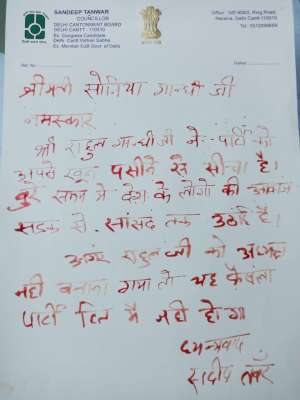 SANDEEP TANWAR
COUNCILLOR
DELHI CANTONMENT BOARD
DELHI CANTT - 110010
Ex. Congress Candidate
Delhi Cantt Vidhan Sabha
Ex. Member DJB Govt. of Delhi
Ring Road
Naraina, Delhi Cantt-110010
Ref. No.
Dated
श्रीमती सोनिया गान्धी जी
नमस्कार
श्री राहुल गान्धी जी ने पार्टी को
अपने खून पसीने से सींचा है।
पुरे सालों मे देश के लोगों की आवाज
सडक से सांसद तक उठाई है।
अगर राहुल जी को अध्यक्ष
नही बनाया गया तो यह फैसला
पार्टी हित में नही होगा
धन्यवाद
संदीप तंवर